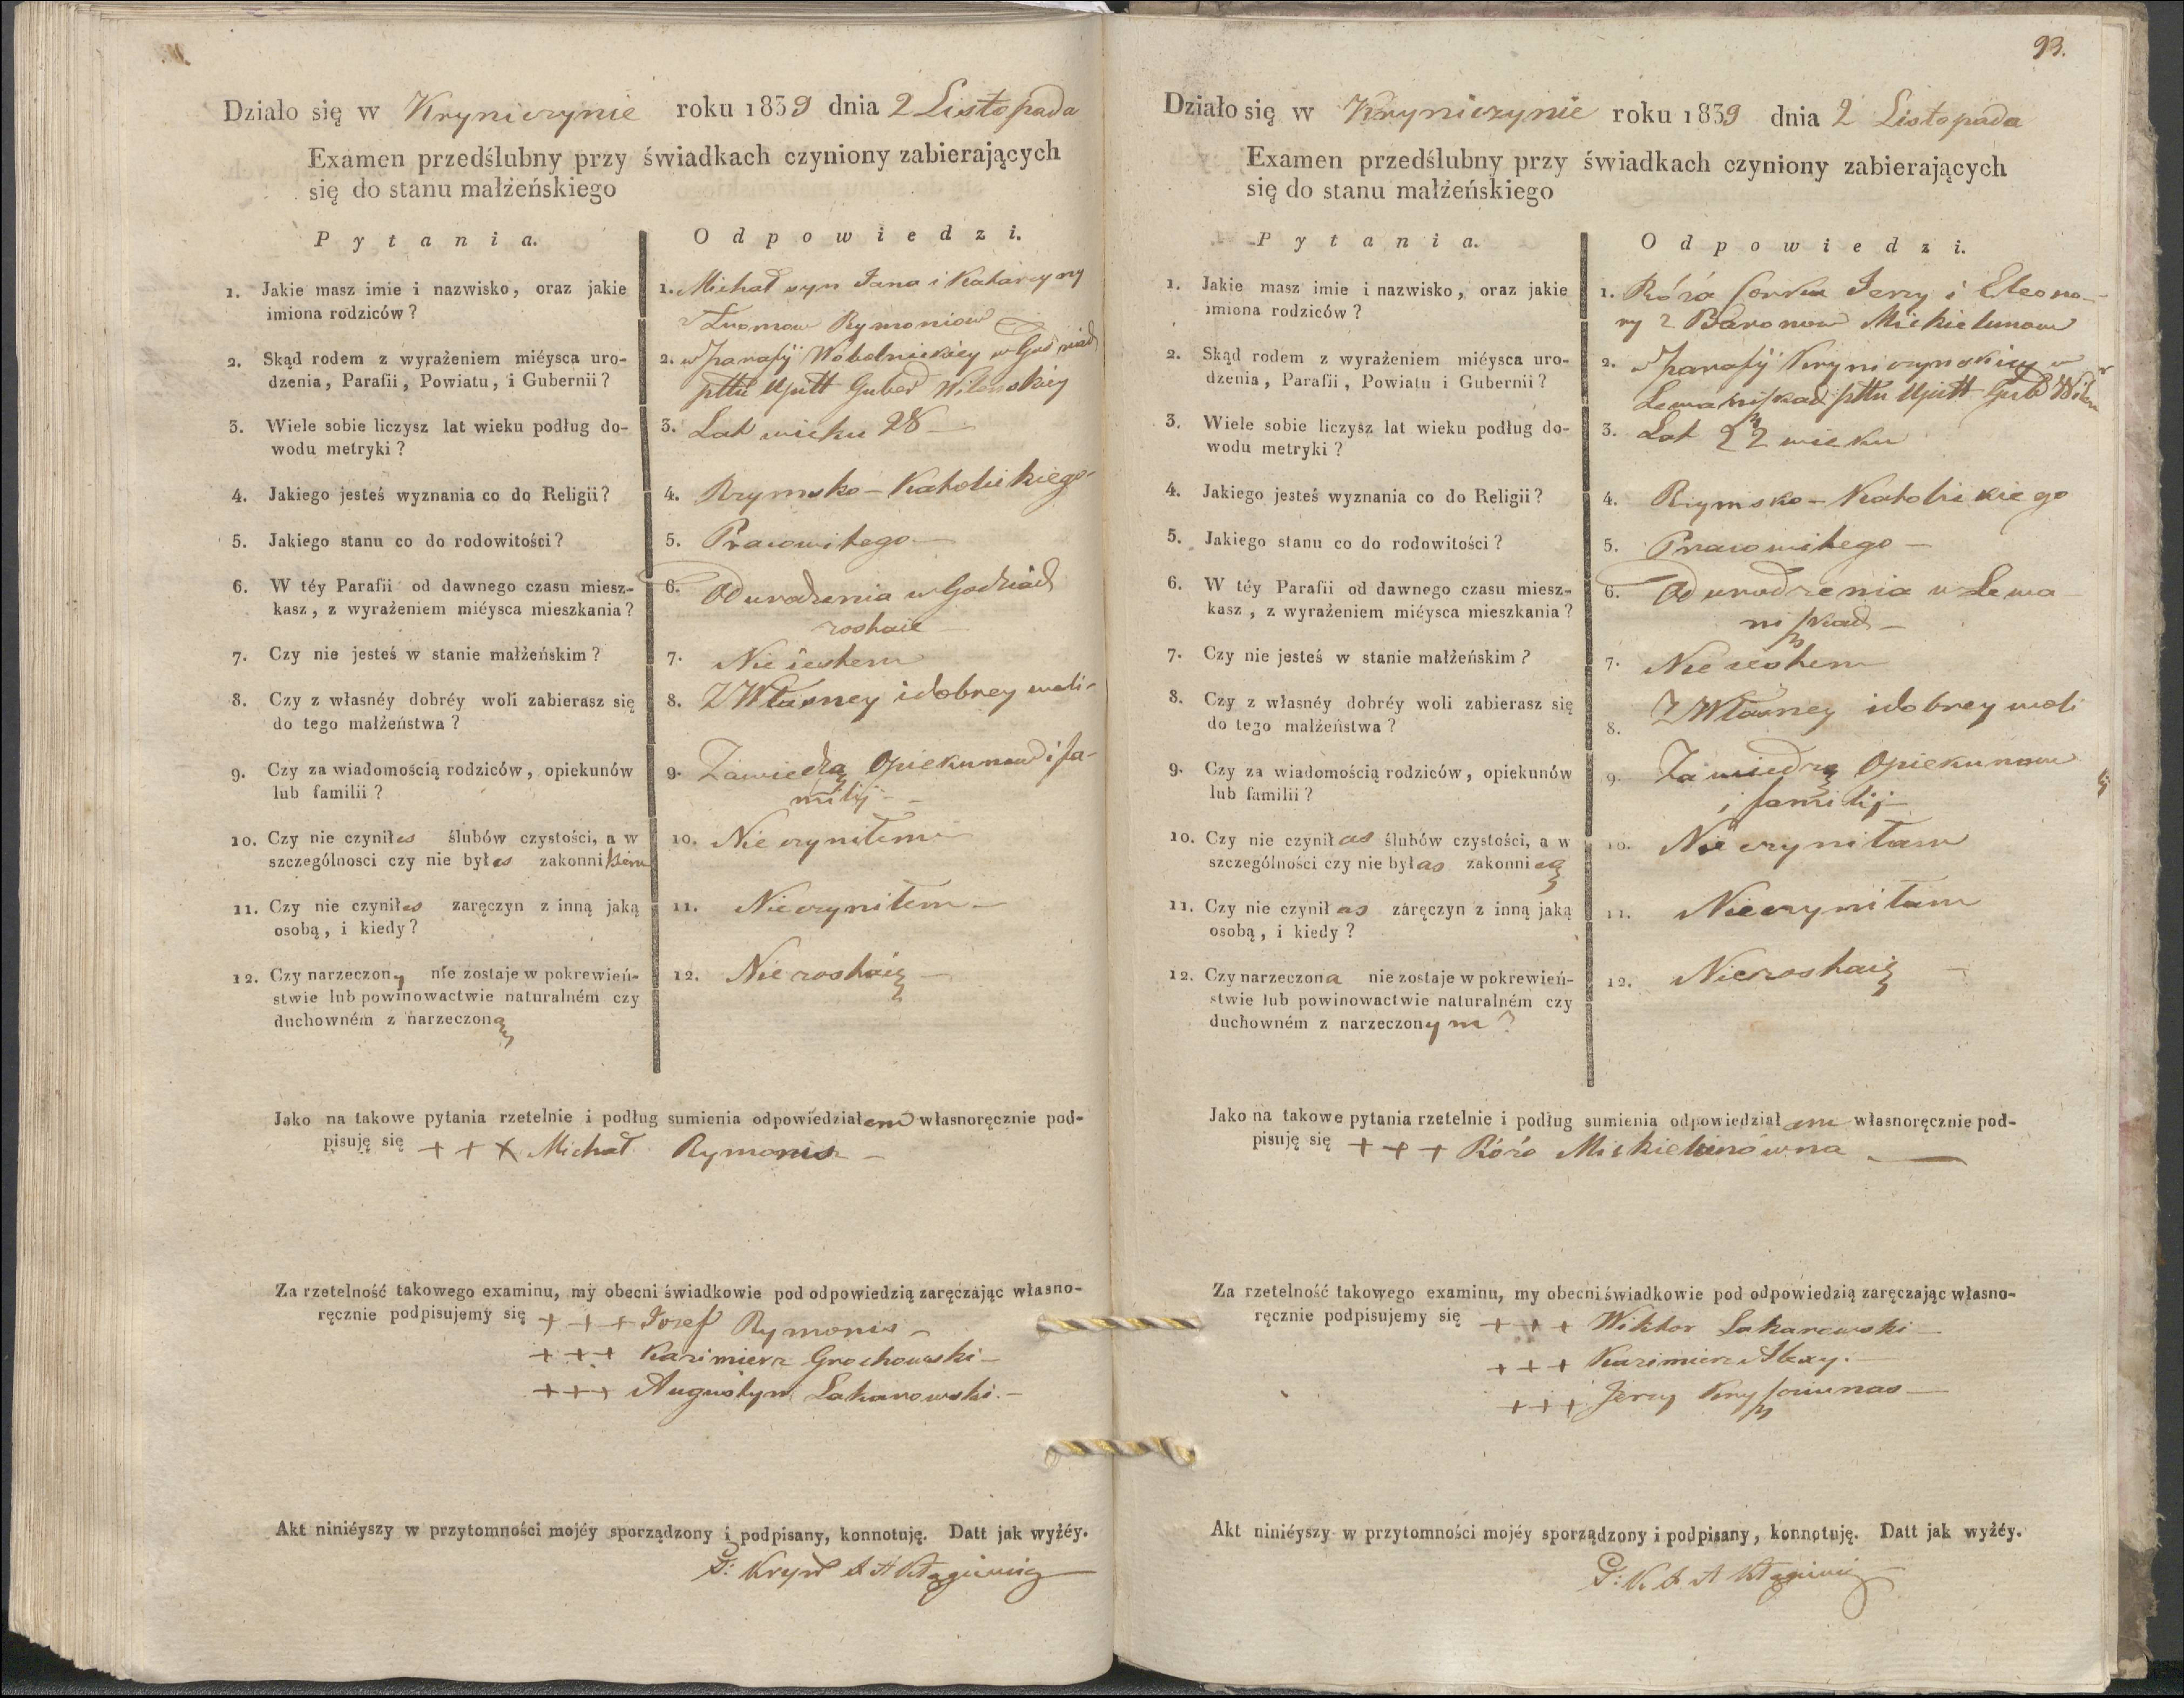 Działo się w Kryniczynie roku 1839 dnia 2 Listopada
Examen przedślubny przy świadkach czyniony zabierających
się do stanu małżeńskiego
Pytania.
Odpowiedzi.
1. Jakie masz imie i nazwisko, oraz jakie
imiona rodziców?
1. Michał syn Jana i Katarzyny
Rymoniow
2. Skąd rodem z wyrażeniem miéysca uro-
dzenia, Parafii, Powiatu, i Gubernii?
2. w parafij Wobolnickiey w
pttu Upitt Guber Wilenskiey
3. Wiele sobie liczysz lat wieku podług do-
wodu metryki?
3. Lat wieku 28
4. Jakiego jesteś wyznania co do Religii?
4. Rzymsko-Katolickiego
5. Jakiego stanu co do rodowitości?
5. Pracowitego
6. W téy Parafii od dawnego czasu miesz-
kasz, z wyrażeniem miéysca mieszkania?
6. Od urodzenia w
zostaie
7. Czy nie jesteś w stanie małżeńskim?
7. Nie iestem
8. Czy z własnéy dobréy woli zabierasz się
do tego małżeństwa?
8. Z Własney i dobrey woli
9. Czy za wiadomością rodziców, opiekunów
lub familii?
9. Zawiedzą Opiekunow i fa-
milij
10. Czy nie czyniłes ślubów czystości, a w
szczególnosci czy nie byłes zakonnikiem
10. Nie czyniłem
11. Czy nie czyniłes zaręczyn z inną jaką
osobą, i kiedy?
11. Nie czyniłem
12. Czy narzeczony nie zostaje w pokrewień-
stwie lub powinowactwie naturalném czy
duchowném z narzeczoną
12. Nie zostaię
Jako na takowe pytania rzetelnie i podług sumienia odpowiedziałem własnoręcznie pod-
pisuję się + + X Michał Rymonis
Za rzetelność takowego examinu, my obecni świadkowie pod odpowiedzią zaręczając własno-
ręcznie podpisujemy się + + + Jozef Rymonis
+ + + Kazimierz Grochowski
+ + + Augustyn Lakarowski
Akt niniéyszy w przytomności mojéy sporządzony i podpisany, konnotuję. Datt jak wyżéy.
93.
Działo się w Kryniczynie roku 1839 dnia 2 Listopada
Examen przedślubny przy świadkach czyniony zabierających
się do stanu małżeńskiego
Pytania.
Odpowiedzi.
1. Jakie masz imie i nazwisko, oraz jakie
imiona rodziców?
1. Róża Corka Jerzy i Eleono-
ry z Baronow Mickielunow
2. Skąd rodem z wyrażeniem miéysca uro-
dzenia, Parafii, Powiatu i Gubernii?
2. parafij Kryniczynskiey w
Lewaniszkach pttu Upitt Gub Wilen
3. Wiele sobie liczysz lat wieku podług do-
wodu metryki?
3. Lat 22 wieku
4. Jakiego jesteś wyznania co do Religii?
4. Rzymsko-Katolickiego
5. Jakiego stanu co do rodowitości?
5. Pracowitego
6. W téy Parafii od dawnego czasu miesz-
kasz, z wyrażeniem miéysca mieszkania?
6. Od urodzenia w Lewa
niszkach
7. Czy nie jesteś w stanie małżeńskim?
7. Nie iestem
8. Czy z własnéy dobréy woli zabierasz się
do tego małżeństwa?
8. Z Własney i dobrey woli
9. Czy za wiadomością rodziców, opiekunów
lub familii?
9. Za wiedzą Opiekunow
i familij
10. Czy nie czyniłas ślubów czystości, a w
szczególności czy nie byłas zakonnicą
10. Nie czyniłam
11. Czy nie czyniłas zaręczyn z inną jaką
osobą, i kiedy?
11. Nie czyniłam
12. Czy narzeczona nie zostaje w pokrewień-
stwie lub powinowactwie naturalném czy
duchowném z narzeczonym?
12. Nie zostaię
Jako na takowe pytania rzetelnie i podług sumienia odpowiedziałam własnoręcznie pod-
pisuję się + + + Róża Mickielunówna
Za rzetelność takowego examinu, my obecni świadkowie pod odpowiedzią zaręczając własno-
ręcznie podpisujemy się + + + Wiktor Lakarowski
+ + + Kazimierz Alexy.
+ + + Jerzy Kryszciunas
Akt niniéyszy w przytomności mojéy sporządzony i podpisany, konnotuję. Datt jak wyżéy.